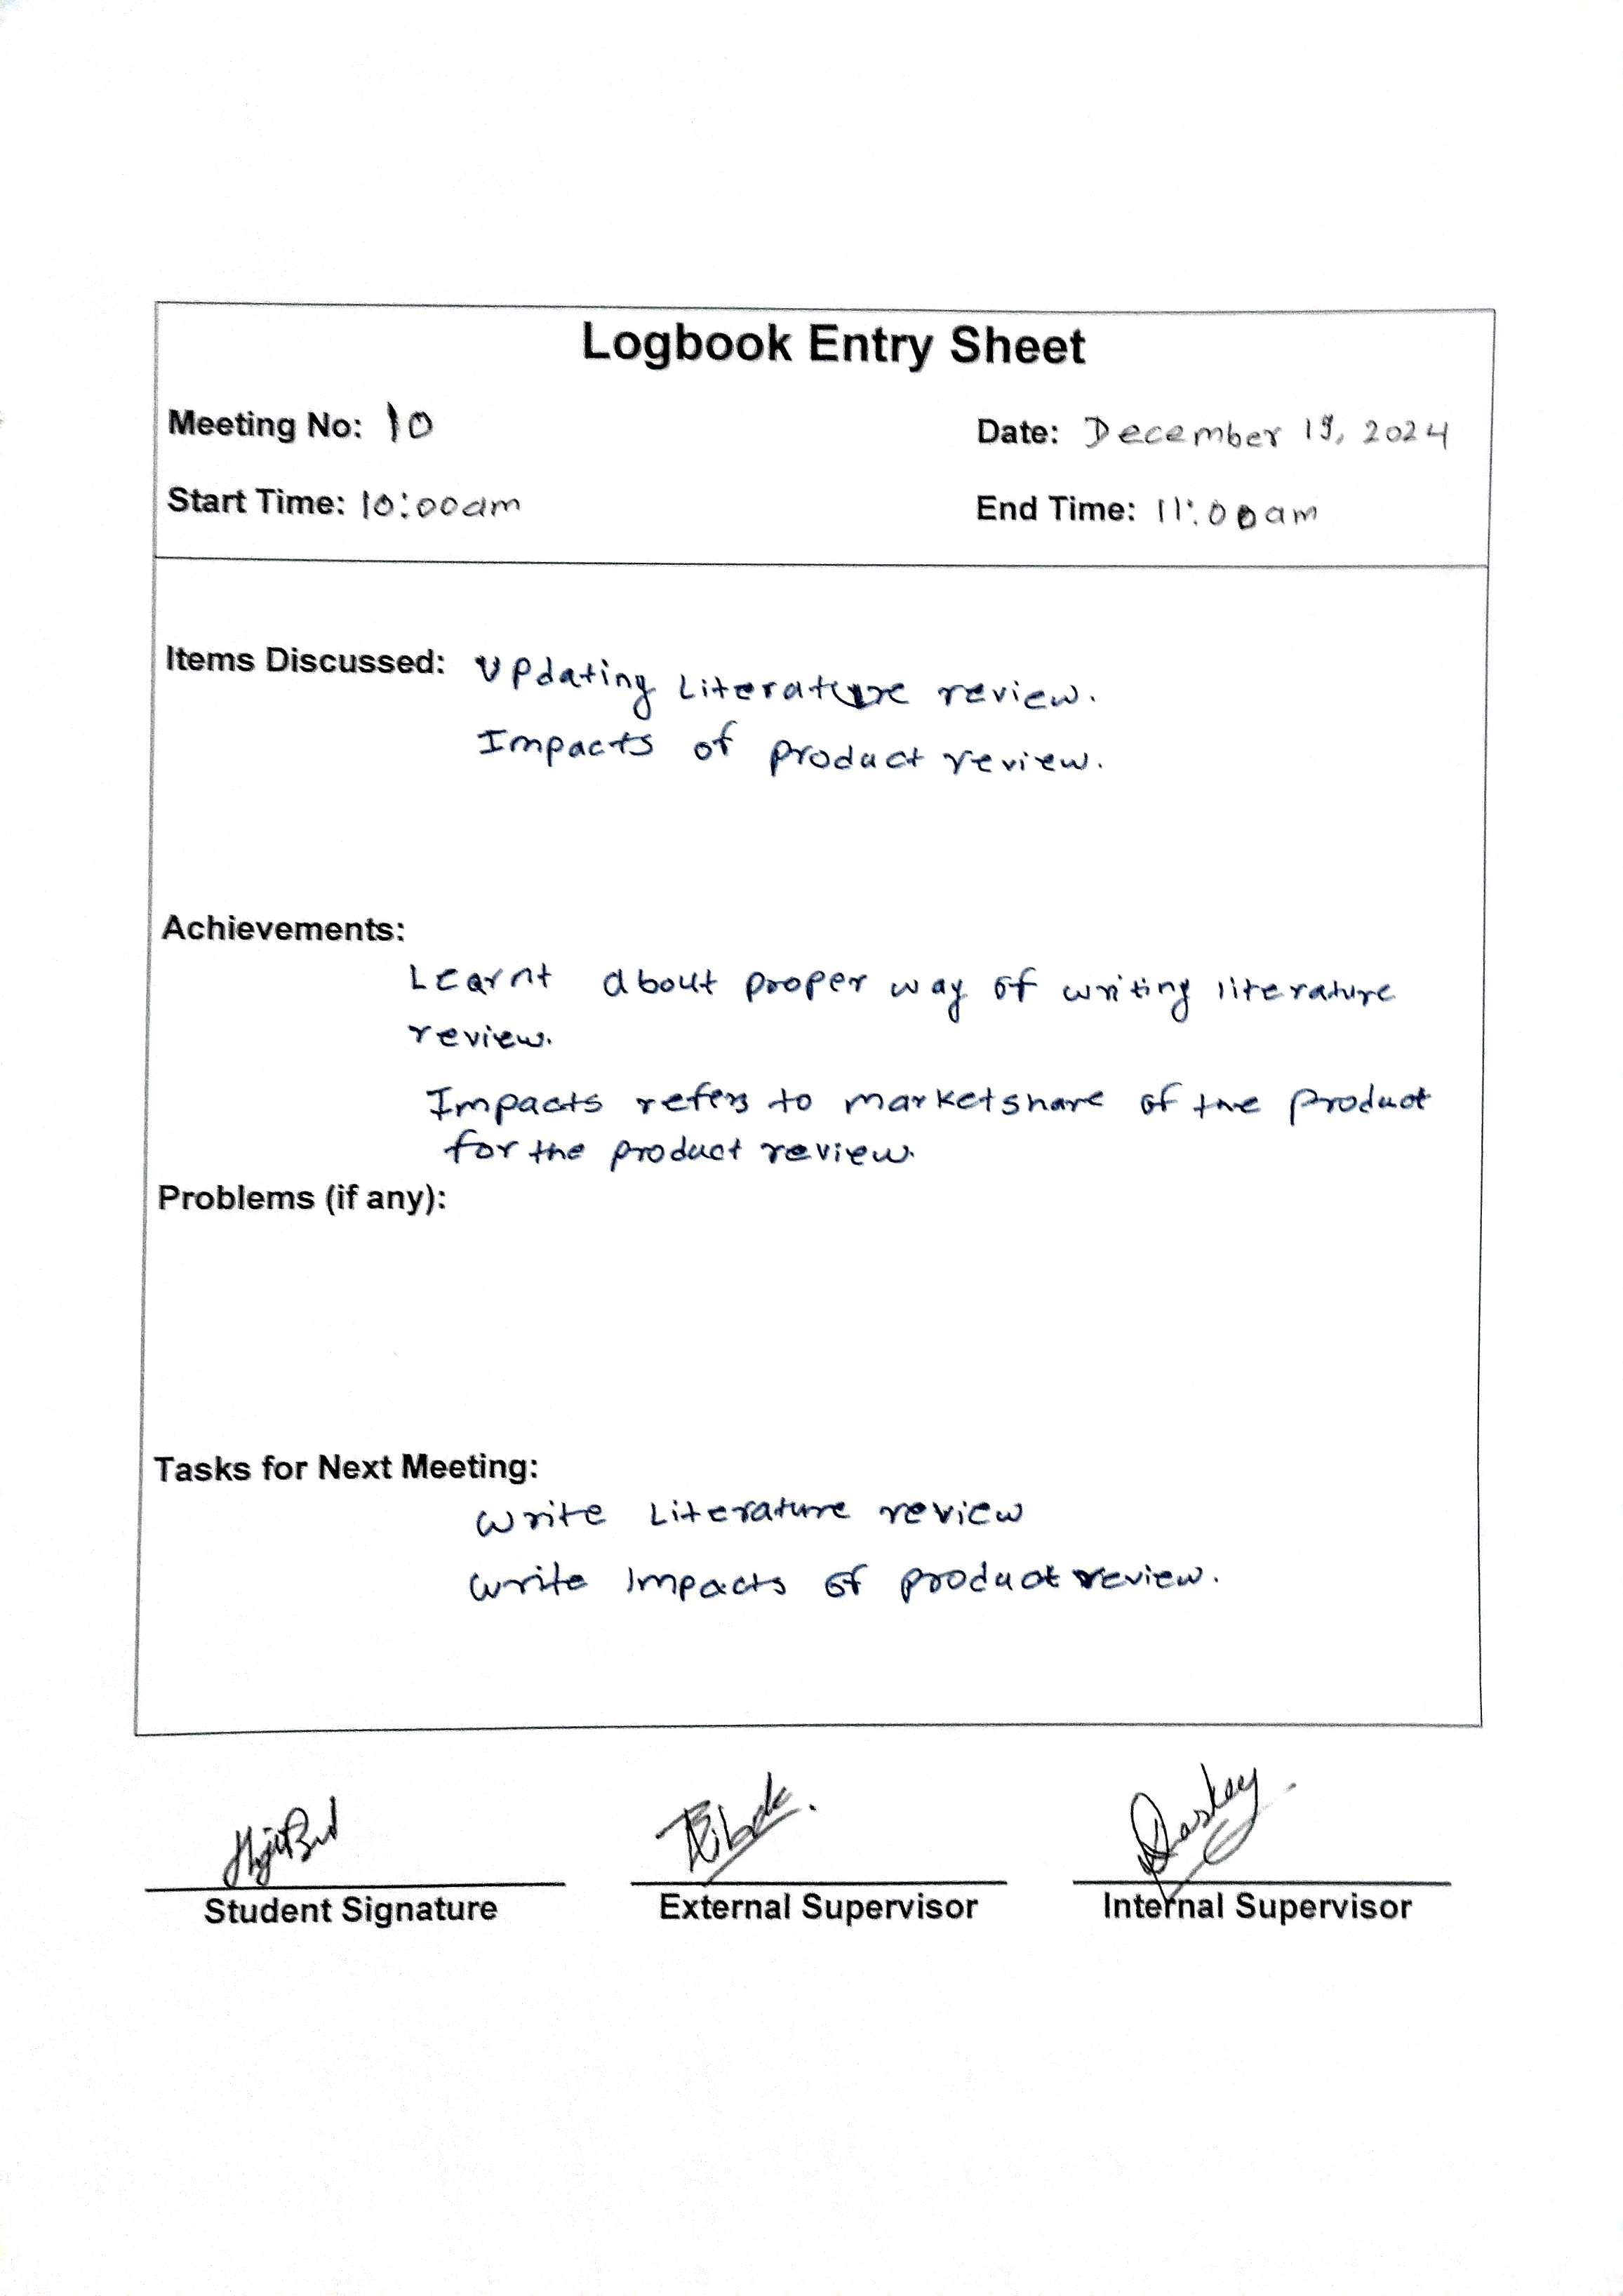 Logbook Entry Sheet
Meeting No: 10
Date: December 19, 2024
Start Time: 10:00am
End Time: 11:00am
Items Discussed: Updating Literature review.
Impacts of product review.
Achievements:
Learnt about proper way of writing literature
review.
Impacts refers to marketshare of the product
for the product review.
Problems (if any):
Tasks for Next Meeting:
Write Literature review
Write Impacts of product review.
Student Signature
External Supervisor
Internal Supervisor